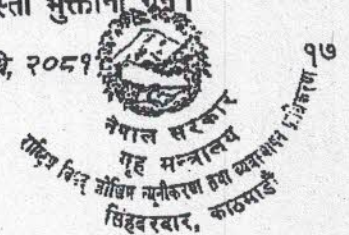 भुक्तानी
२०८१
१७
नेपाल सरकार
गृह मन्त्रालय
राष्ट्रिय विपद् जोखिम न्यूनीकरण तथा व्यवस्थापन प्राधिकरण
सिंहदरबार, काठमाडौं